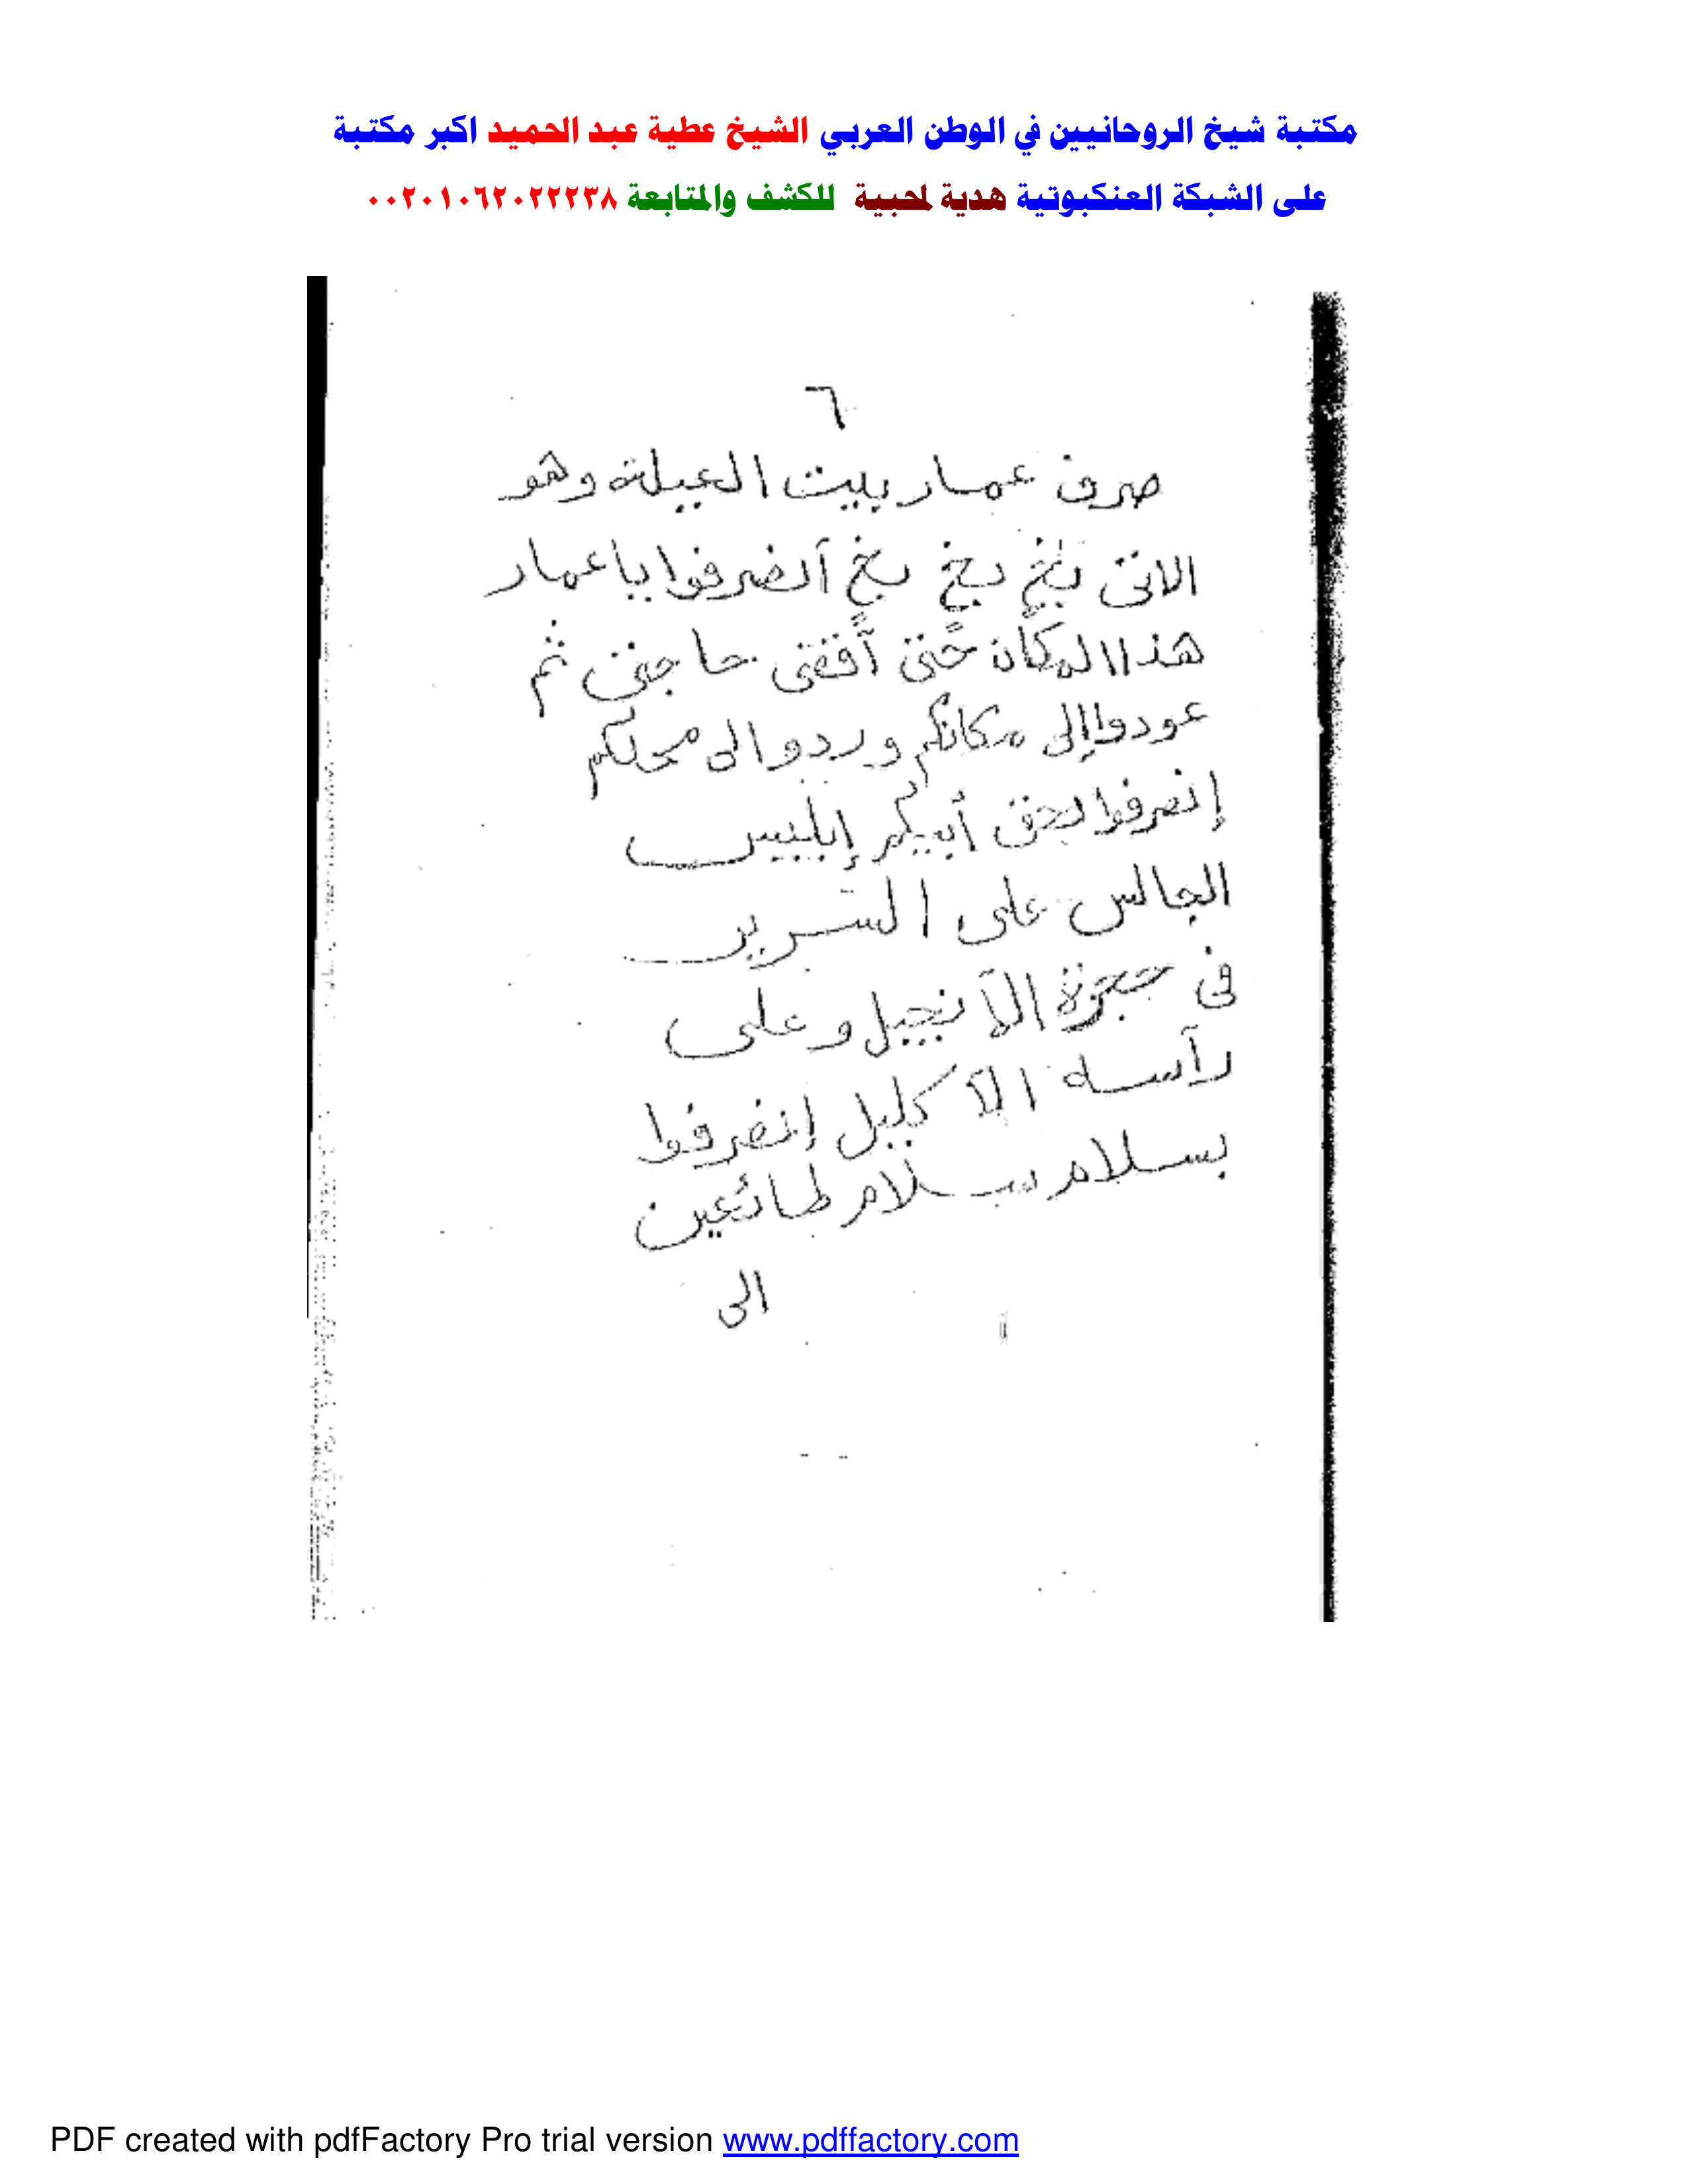 مكتبة شيخ الروحانيين في الوطن العربي الشيخ عطية عبد الحميد اكبر مكتبة
على الشبكة العنكبوتية هدية لمحبية للكشف والمتابعة ٠٠٢٠١٠٦٢٠٢٢٢٣٨
٦
صرف عمار بيت العيلة وهو
الاتى بخ بخ بخ أنصرفوا يا عمار
هذا المكان حتى أقضى حاجتى ثم
عودوا إلى مكانكم وردوا الى محلكم
إنصرفوا بحق أبيكم إبليس
الجالس على السرير
فى الأنجيل وعلى
رأسه الأكليل إنصرفوا
بسلام بسلام طائعين
الى
PDF created with pdfFactory Pro trial version www.pdffactory.com